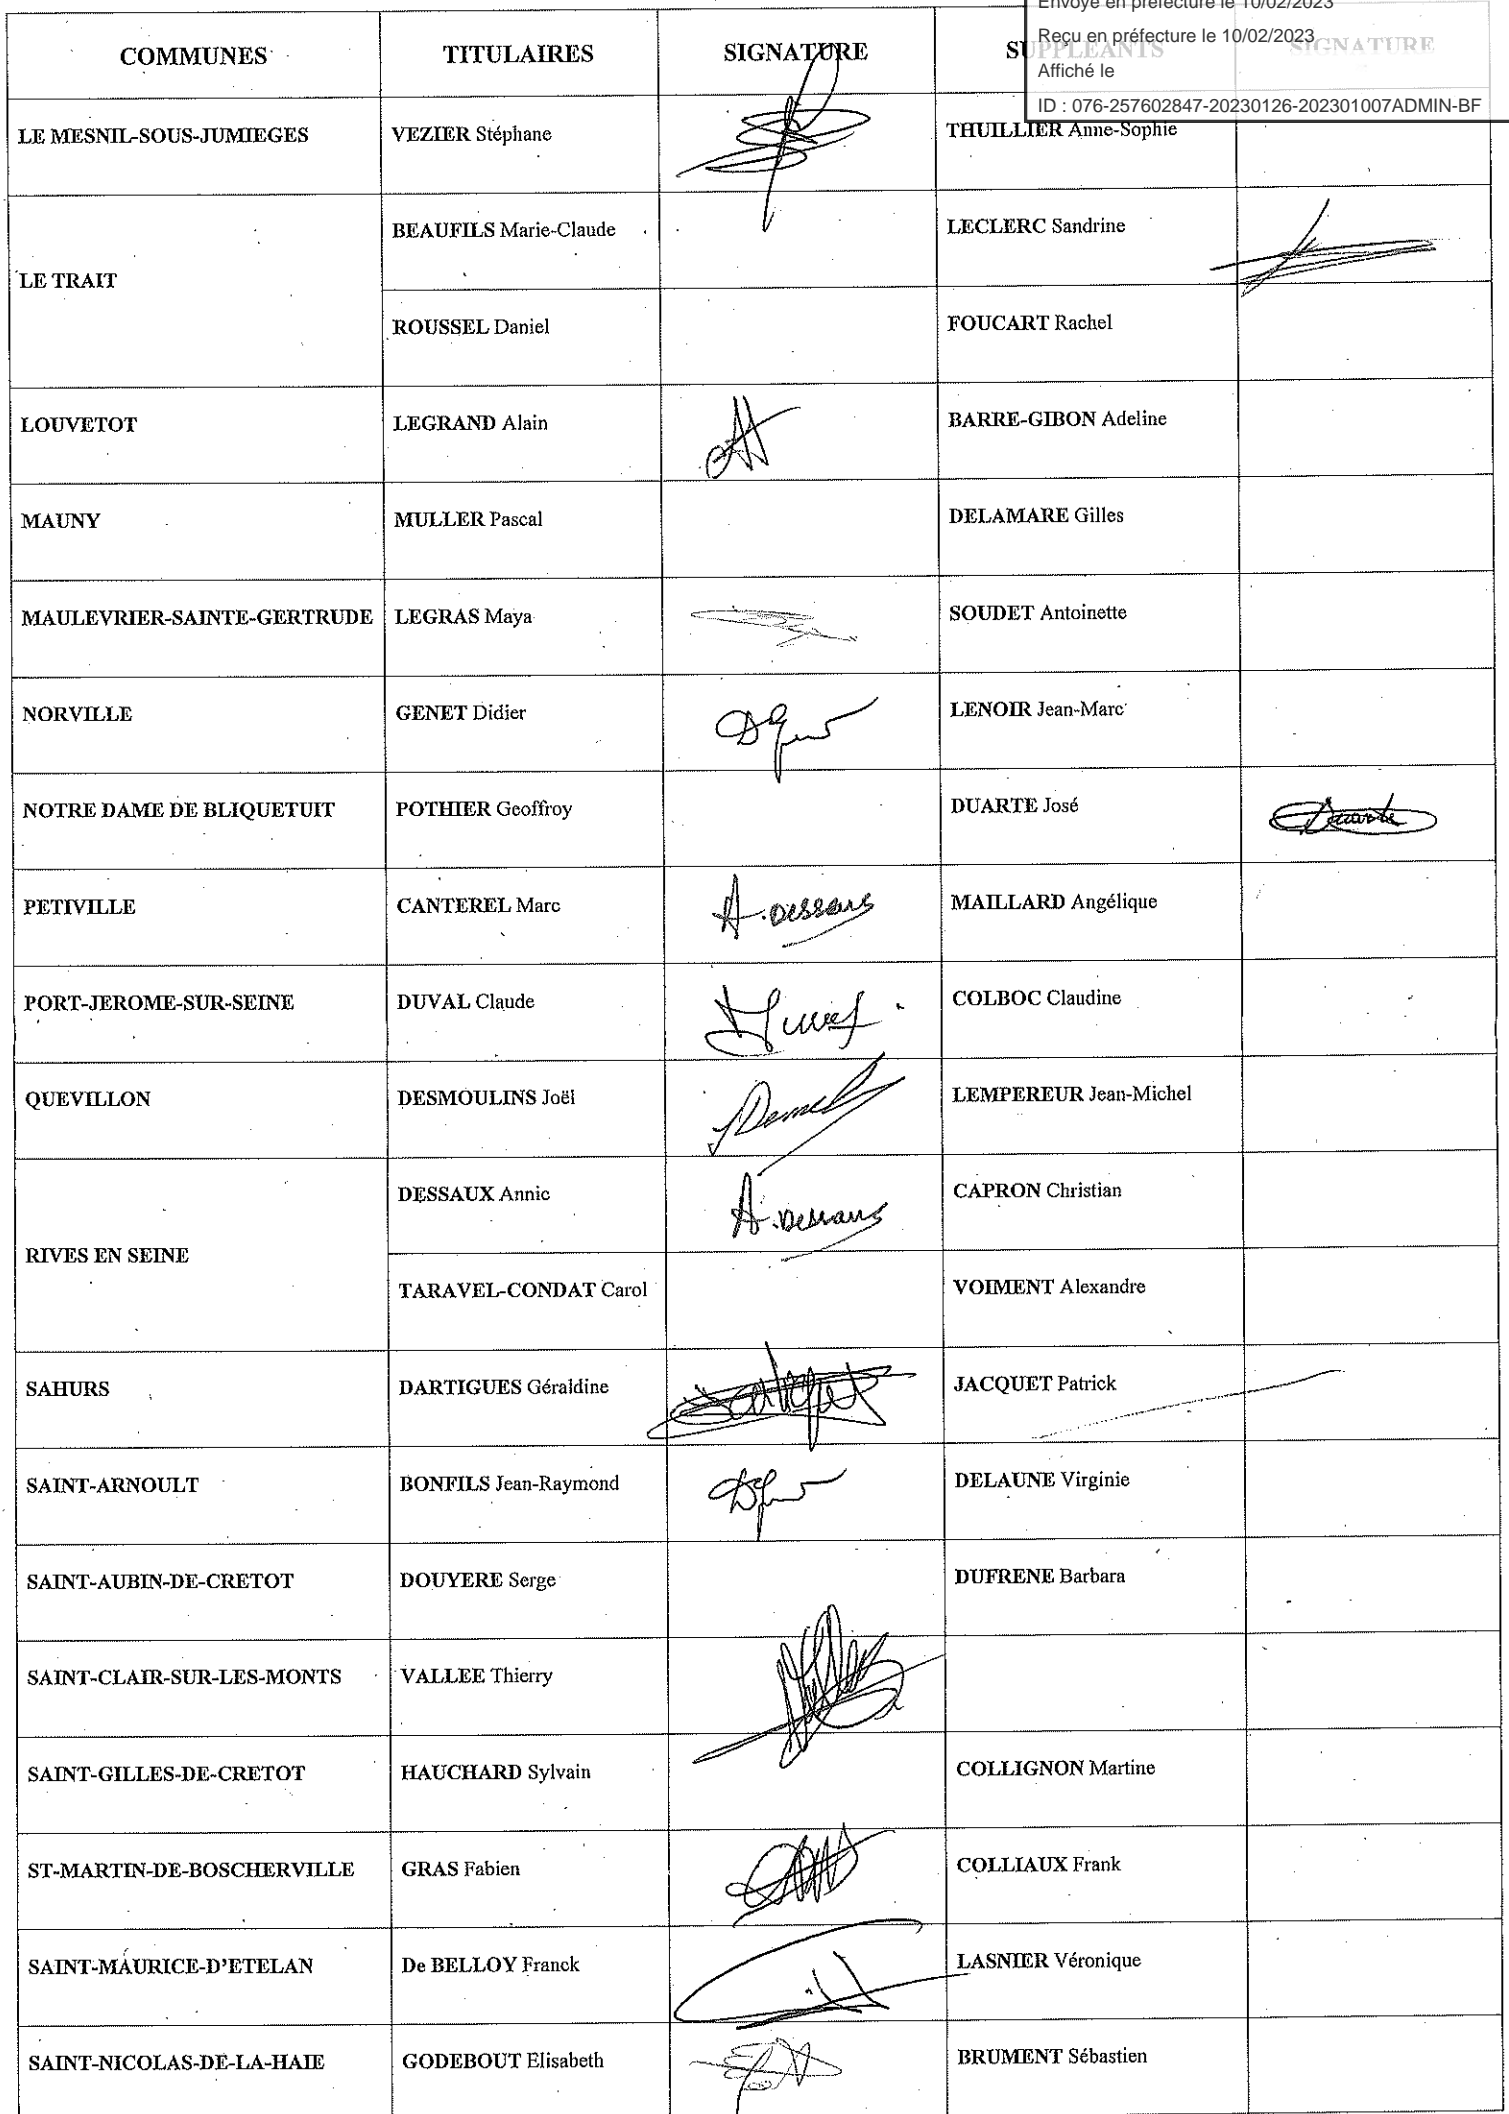 Envoyé en préfecture le 10/02/2023
Reçu en préfecture le 10/02/2023
Affiché le
ID : 076-257602847-20230126-202301007ADMIN-BF
COMMUNES TITULAIRES SIGNATURE SUPPLEANTS SIGNATURE
LE MESNIL-SOUS-JUMIEGES VEZIER Stéphane THUILLIER Anne-Sophie
LE TRAIT BEAUFILS Marie-Claude LECLERC Sandrine
ROUSSEL Daniel FOUCART Rachel
LOUVETOT LEGRAND Alain BARRE-GIBON Adeline
MAUNY MULLER Pascal DELAMARE Gilles
MAULEVRIER-SAINTE-GERTRUDE LEGRAS Maya SOUDET Antoinette
NORVILLE GENET Didier LENOIR Jean-Marc
NOTRE DAME DE BLIQUETUIT POTHIER Geoffroy DUARTE José Duarte
PETIVILLE CANTEREL Marc A. Dessaux MAILLARD Angélique
PORT-JEROME-SUR-SEINE DUVAL Claude COLBOC Claudine
QUEVILLON DESMOULINS Joël LEMPEREUR Jean-Michel
RIVES EN SEINE DESSAUX Annic A. Dessaux CAPRON Christian
TARAVEL-CONDAT Carol VOIMENT Alexandre
SAHURS DARTIGUES Géraldine JACQUET Patrick
SAINT-ARNOULT BONFILS Jean-Raymond DELAUNE Virginie
SAINT-AUBIN-DE-CRETOT DOUYERE Serge DUFRENE Barbara
SAINT-CLAIR-SUR-LES-MONTS VALLEE Thierry
SAINT-GILLES-DE-CRETOT HAUCHARD Sylvain COLLIGNON Martine
ST-MARTIN-DE-BOSCHERVILLE GRAS Fabien COLLIAUX Frank
SAINT-MAURICE-D'ETELAN De BELLOY Franck LASNIER Véronique
SAINT-NICOLAS-DE-LA-HAIE GODEBOUT Elisabeth BRUMENT Sébastien